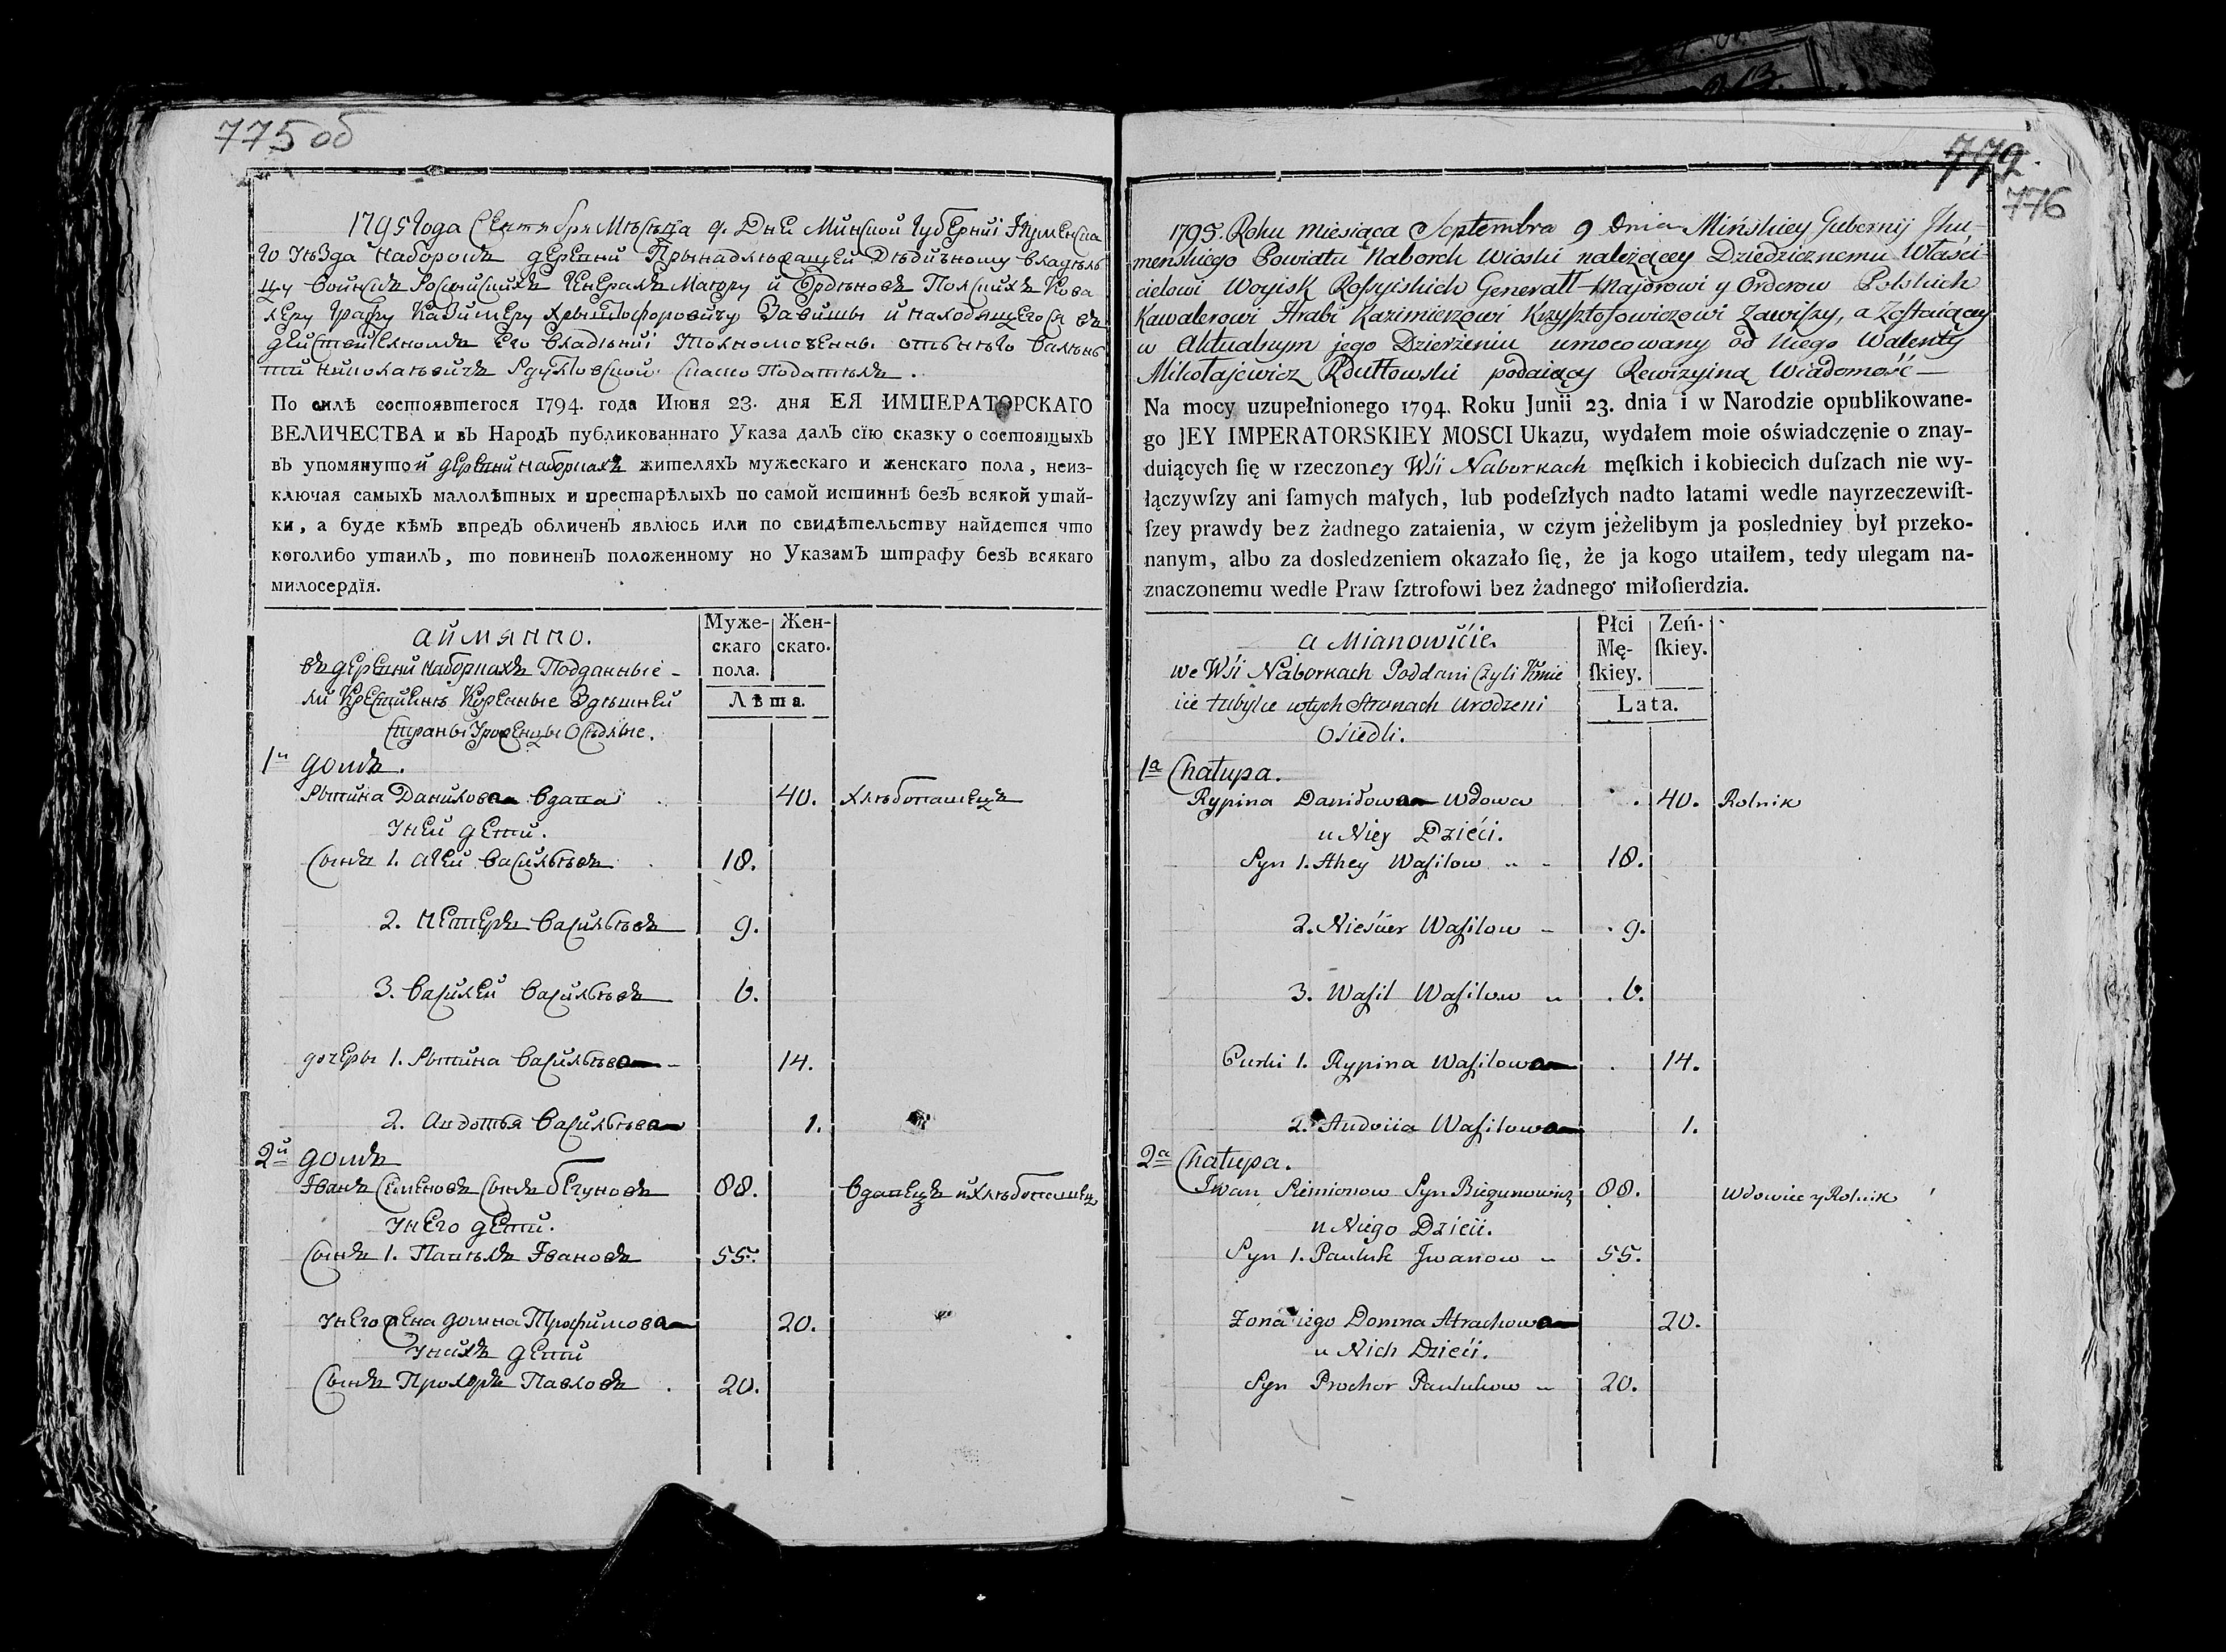 775 об
1795 Года Сентября Мѣсяца 9. Дня Минской Губерніи Игуменска
го Уѣзда Наборокъ деревни Принадлѣжащей Дѣдичному владѣль
цу Войскъ Росыйскихъ Генералъ Маіору и Ордѣновъ Полскихъ Кова
леру Графу Казимеру Хрыштофоровичу Завишы и находящегося въ
действителномъ Его владѣніі Полномоченны отъ него Валѣнъ
тій Николаевичъ Рдултовской
По силѣ состоявшегося 1794. года Июня 23. дня ЕЯ ИМПЕРАТОРСКАГО
ВЕЛИЧЕСТВА и въ НародЪ публикованнаго Указа далЪ сїю сказку о состоящыхЪ
въ упомянутой деревни наборкахъ жителяхЪ мужескаго и женскаго пола, неиз-
ключая самыхЪ малолѣтных и престарѣлыхЪ по самой истиннѣ безЪ всякой утай-
ки, а буде кѣмЪ впредЪ обличенЪ явлюсь или по свидѣтельству найдется что
коголибо утаилЪ, то повиненЪ положенному по УказамЪ штрафу безЪ всякаго
милосердїя.
аймянно.
въ деревни наборкахъ Подданные
ли Крестияне Коренные Здѣшней
Страны Уроженцы Осѣдлые.
Муже-
скаго
пола.
Жен-
скаго.
Лѣта.
1й домъ.
Рыпина Данилова вдава 40. хлѣбопашецъ
У ней дети.
Сынъ 1. Агей Васильѣвъ 18.
2. Нестеръ Васильѣвъ 9.
3. Василей Васильѣвъ 6.
дочеры 1. Рыпина Васильѣва 14.
2. Авдотья Васильѣва 1.
2й домъ
Іванъ Семеновъ Сынъ бегуновъ 88. вдавецъ и хлѣбопашец
У него дети.
Сынъ 1. Павѣлъ Івановъ 55.
У него жена домна Трофимова 20.
У нихъ дети
Сынъ Прохоръ Павловъ 20.
772.
776
1795. Roku Miesiąca Septembra 9 Dnia Mińskiey Gubernij Jhu-
meńskiego Powiatu Naborek Wioski należącey Dziedzicznemu Właści-
cielowi Woyisk Roſsyiskich Generałł Majorowi y Orderow Polskich
Kawalerowi Hrabi Kazimierzowi Krzysztofowiczowi Zawiſzy, a Zostaiącey
w Aktualnym jego Dzierżeniu umocowany od niego Walenty
Mikołajewicz Rdułtowski podaiący Rewizyiną Wiadomość —
Na mocy uzupełnionego 1794. Roku Junii 23. dnia i w Narodzie opublikowane-
go JEY IMPERATORSKIEY MOSCI Ukazu, wydałem moie oświadczęnie o znay-
duiących ſię w rzeczoney Wśi Naborkach męſkich i kobiecich duſzach nie wy-
łączywſzy ani ſamych małych, lub podeſzłych nadto latami wedle nayrzeczewiſt-
ſzey prawdy bez żadnego zataienia, w czym jeżelibym ja posledniey był przeko-
nanym, albo za dosledzeniem okazało ſię, że ja kogo utaiłem, tedy ulegam na-
znaczonemu wedle Praw ſztrofowi bez żadnego miłoſierdzia.
a Mianowićie.
we Wśi Naborkach Poddani Czyli Kmie
cie tubylce w tych Stronach Urodzeni
Ośiedli.
Płci
Mę-
ſkiey.
Zeń-
ſkiey.
Lata.
1a Chałupa.
Rypina Daniłowa Wdowa 40. Rolnik
u Niey Dzieći.
Syn 1. Ahey Waſilow 18.
2. Nieścier Waſilow 9.
3. Waſil Waſilow 6.
Curki 1. Rypina Waſilowa 14.
2. Audocia Waſilowa 1.
2a Chałupa.
Jwan Siemionow Syn Biegunowicz 88. Wdowiec y Rolnik
u Niego Dzieći.
Syn 1. Pauluk Jwanow 55.
Żona iego Domna Atrachowa 20.
u Nich Dzieći.
Syn Prochor Paulukow 20.